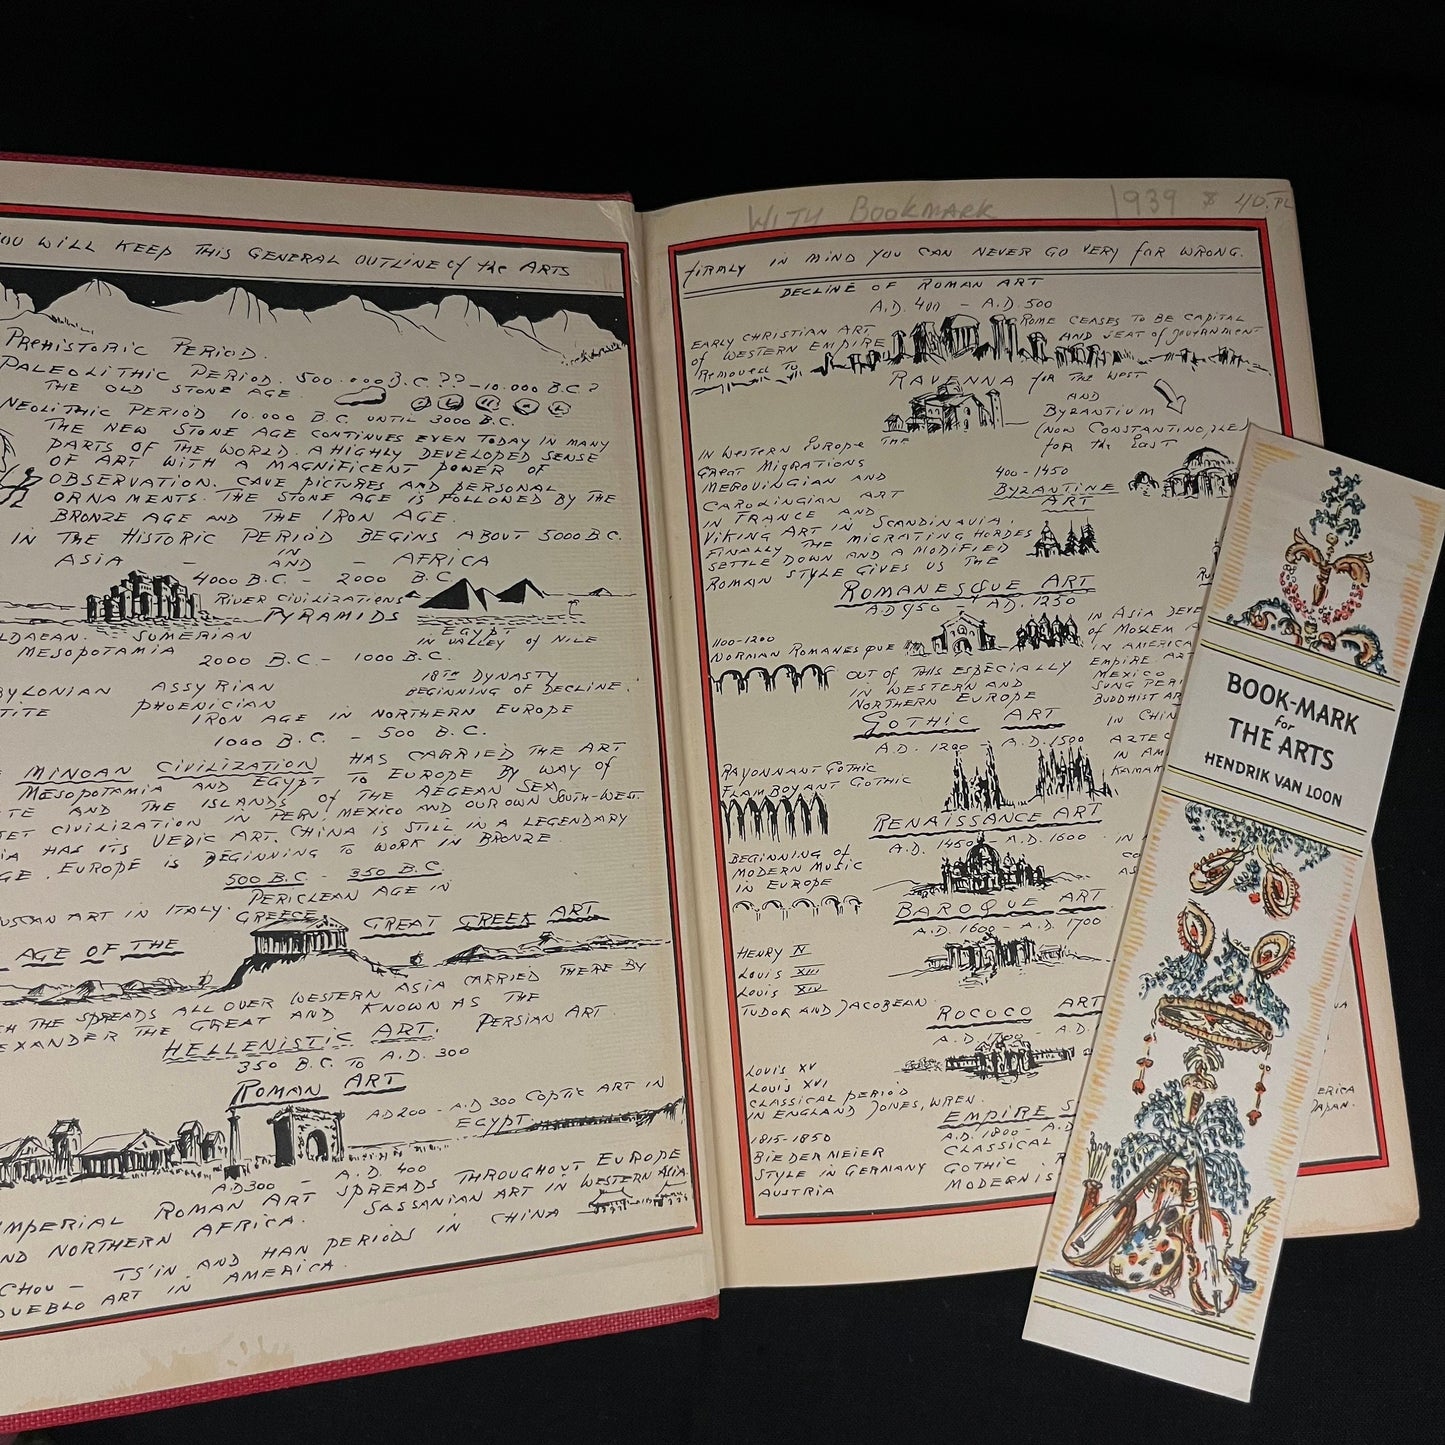 YOU WILL KEEP THIS GENERAL OUTLINE of the ARTS
PREHISTORIC PERIOD.
PALEOLITHIC PERIOD. 500.000 B.C. ?? - 10.000 B.C.?
THE OLD STONE AGE.
NEOLITHIC PERIOD 10.000 B.C. UNTIL 3000 B.C.
THE NEW STONE AGE CONTINUES EVEN TODAY IN MANY
PARTS OF THE WORLD. A HIGHLY DEVELOPED SENSE
OF ART WITH A MAGNIFICENT POWER OF
OBSERVATION. CAVE PICTURES AND PERSONAL
ORNAMENTS. THE STONE AGE IS FOLLOWED BY THE
BRONZE AGE AND THE IRON AGE.
IN THE HISTORIC PERIOD BEGINS ABOUT 5000 B.C.
IN
ASIA - AND - AFRICA
4000 B.C. - 2000 B.C.
RIVER CIVILIZATIONS
PYRAMIDS
EGYPT
IN VALLEY of NILE
SUMERIAN
MESOPOTAMIA
2000 B.C. - 1000 B.C.
18TH DYNASTY
BEGINNING OF DECLINE.
ASSYRIAN
PHOENICIAN
IRON AGE IN NORTHERN EUROPE
1000 B.C. - 500 B.C.
MINOAN CIVILIZATION HAS CARRIED THE ART
MESOPOTAMIA AND EGYPT TO EUROPE BY WAY OF
AND THE ISLANDS of THE AEGEAN SEA.
CIVILIZATION IN PERU, MEXICO AND OUR OWN SOUTH-WEST.
HAS ITS VEDIC ART. CHINA IS STILL IN A LEGENDARY
AGE. EUROPE IS BEGINNING TO WORK IN BRONZE
500 B.C - 350 B.C
PERICLEAN AGE IN
ART IN ITALY. GREECE
AGE OF THE GREAT GREEK ART
CARRIED THERE BY
THE SPREADS ALL OVER WESTERN ASIA
ALEXANDER THE GREAT AND KNOWN AS THE
HELLENISTIC ART. PERSIAN ART.
350 B.C. TO A.D. 300
ROMAN ART
AD 200 - A.D 300 COPTIC ART IN
EGYPT
AD 300 - A.D. 400
IMPERIAL ROMAN ART SPREADS THROUGHOUT EUROPE
AND NORTHERN AFRICA. SASSANIAN ART IN WESTERN ASIA.
CHOU - TS'IN AND HAN PERIODS IN CHINA
PUEBLO ART IN AMERICA.
WITH BOOKMARK 1939 $
FIRMLY IN MIND YOU CAN NEVER GO VERY FAR WRONG.
DECLINE OF ROMAN ART
A.D. 400 - A.D. 500
EARLY CHRISTIAN ART
of WESTERN EMPIRE
Removed TO
ROME CEASES TO BE CAPITAL
AND SEAT of government
RAVENNA for The WEST
AND
BYZANTIUM
(NOW CONSTANTINOPLE)
for the East
THE
400-1450
BYZANTINE
ART
IN WESTERN EUROPE
GREAT MIGRATIONS
MEROVINGIAN AND
CAROLINGIAN ART
IN FRANCE AND
VIKING ART IN SCANDINAVIA.
FINALLY THE MIGRATING HORDES
SETTLE DOWN AND A MODIFIED
ROMAN STYLE GIVES US THE
ROMANESQUE ART
AD 950 - AD. 1250
1100-1200
NORMAN ROMANESQUE
OUT OF THIS ESPECIALLY
IN WESTERN AND
NORTHERN EUROPE
IN ASIA
of MOSLEM
IN AMERICA
EMPIRE
MEXICO
SUNG
BUDDHIST
IN CHIN
AZTEC
IN AM
KAMAK
GOTHIC ART
A.D. 1200 - A.D. 1500
RAYONNANT GOTHIC
FLAMBOYANT GOTHIC
RENAISSANCE ART
A.D. 1450 - A.D. 1600
BEGINNING of
MODERN MUSIC
IN EUROPE
BAROQUE ART.
A.D. 1600 - A.D. 1700
HENRY IV
LOUIS XIII
LOUIS XIV
TUDOR AND JACOBEAN
ROCOCO ART
LOUIS XV
LOUIS XVI
CLASSICAL PERIOD
IN ENGLAND JONES, WREN.
EMPIRE
A.D. 1800 - A.D.
1815-1850
BIEDERMEIER
STYLE IN GERMANY
AUSTRIA
CLASSICAL
GOTHIC
MODERNIS
JAPAN.
BOOK-MARK
for
THE ARTS
HENDRIK VAN LOON